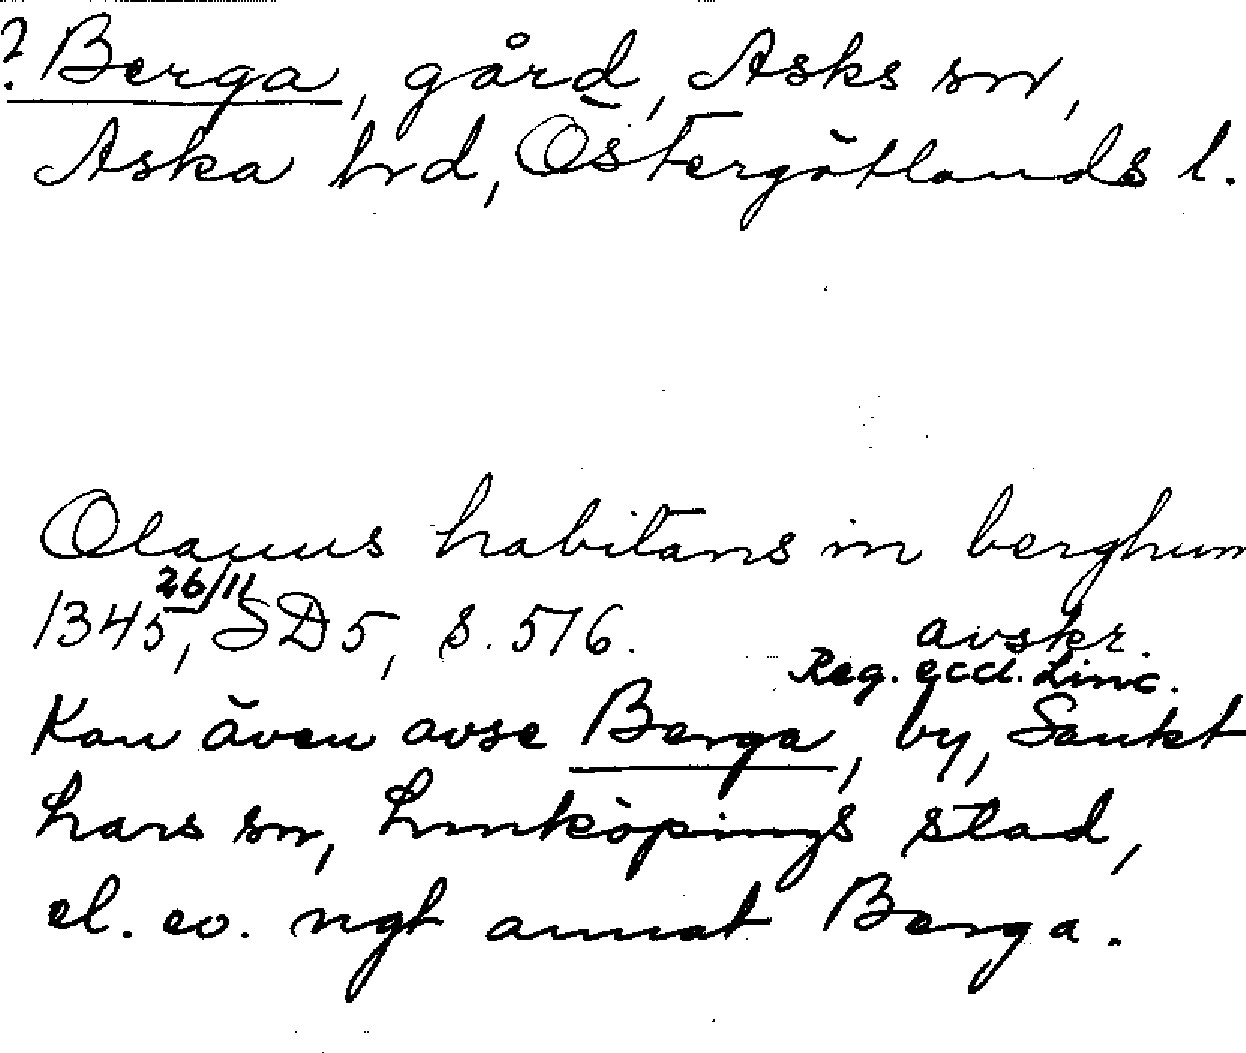 ? Berga, gård, Asks sn,
Aska hrd, Östergötlands l.
Olauus habitans in berghum
1345 26/11, SD 5, s. 516. avskr.
Reg. eccl. Linc.
Kan även avse Berga, by, Sankt
Lars sn, Linköpings stad,
el. ev. ngt annat Berga.